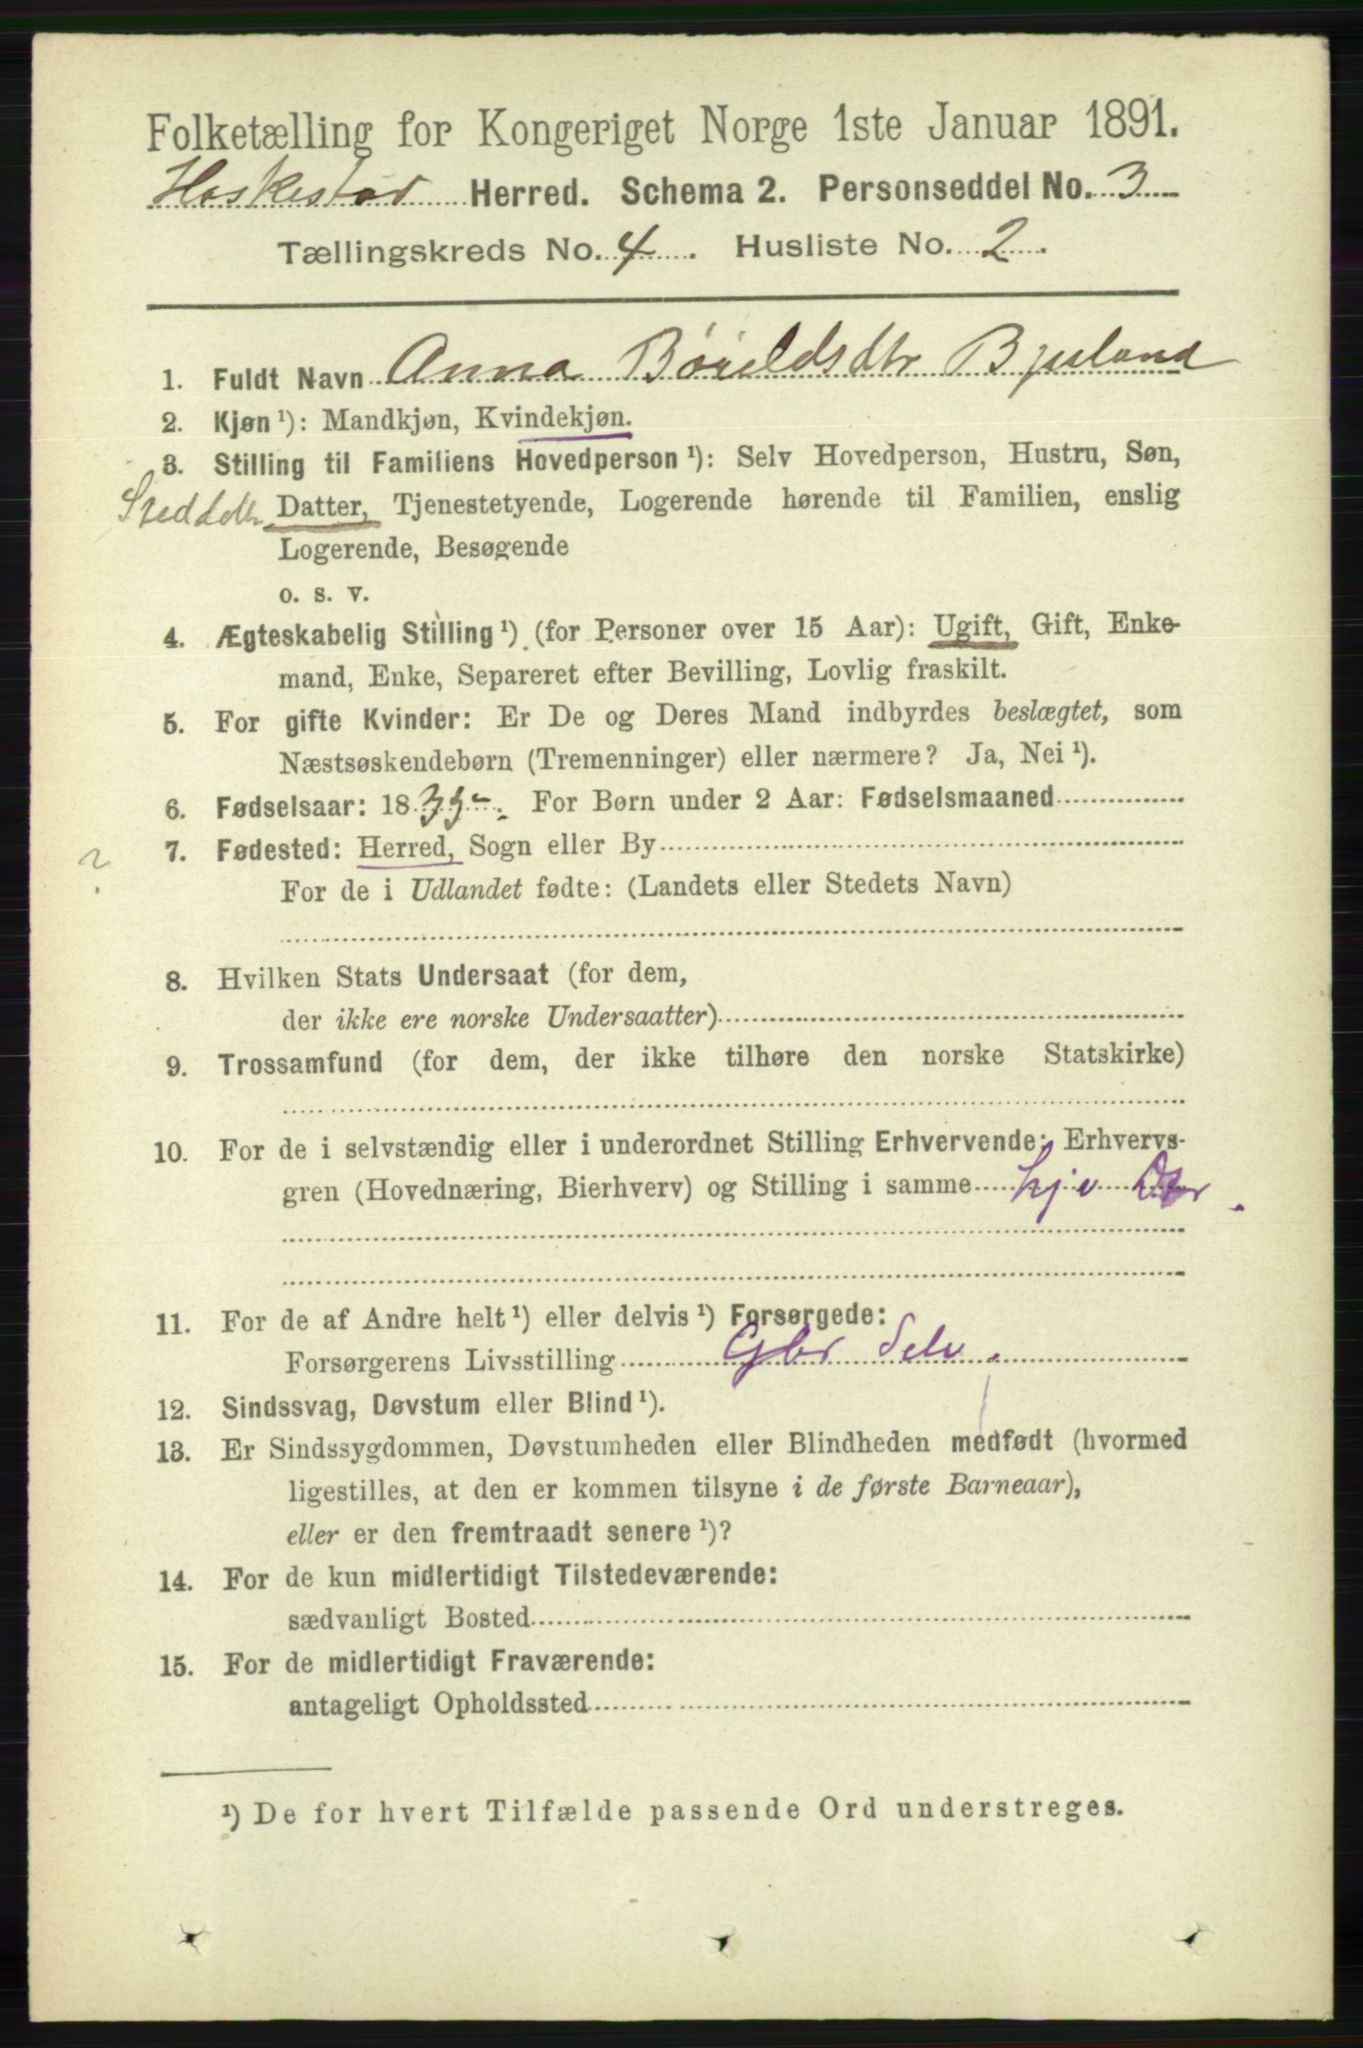 Folketælling for Kongeriget Norge 1ste Januar 1891.
Heskestad Herred. Schema 2. Personseddel No. 3
Tællingskreds No. 4. Husliste No. 2.
1. Fuldt Navn Anna Bøieldsdtr Bjuland
2. Kjøn ¹): Mandkjøn, Kvindekjøn.
3. Stilling til Familiens Hovedperson ¹): Selv Hovedperson, Hustru, Søn,
Steddtr Datter, Tjenestetyende, Logerende hørende til Familien, enslig
Logerende, Besøgende
o. s. v.
4. Ægteskabelig Stilling ¹) (for Personer over 15 Aar): Ugift, Gift, Enke-
mand, Enke, Separeret efter Bevilling, Lovlig fraskilt.
5. For gifte Kvinder: Er De og Deres Mand indbyrdes beslægtet, som
Næstsøskendebørn (Tremenninger) eller nærmere? Ja, Nei ¹).
6. Fødselsaar: 1833. For Børn under 2 Aar: Fødselsmaaned
? 7. Fødested: Herred, Sogn eller By
For de i Udlandet fødte: (Landets eller Stedets Navn)
8. Hvilken Stats Undersaat (for dem,
der ikke ere norske Undersaatter)
9. Trossamfund (for dem, der ikke tilhøre den norske Statskirke)
10. For de i selvstændig eller i underordnet Stilling Erhvervende: Erhvervs-
gren (Hovednæring, Bierhverv) og Stilling i samme
11. For de af Andre helt ¹) eller delvis ¹) Forsørgede:
Forsørgerens Livsstilling Gbr Selv.
12. Sindssvag, Døvstum eller Blind ¹).
13. Er Sindssygdommen, Døvstumheden eller Blindheden medfødt (hvormed
ligestilles, at den er kommen tilsyne i de første Barneaar),
eller er den fremtraadt senere ¹)?
14. For de kun midlertidigt Tilstedeværende:
sædvanligt Bosted
15. For de midlertidigt Fraværende:
antageligt Opholdssted
¹) De for hvert Tilfælde passende Ord understreges.